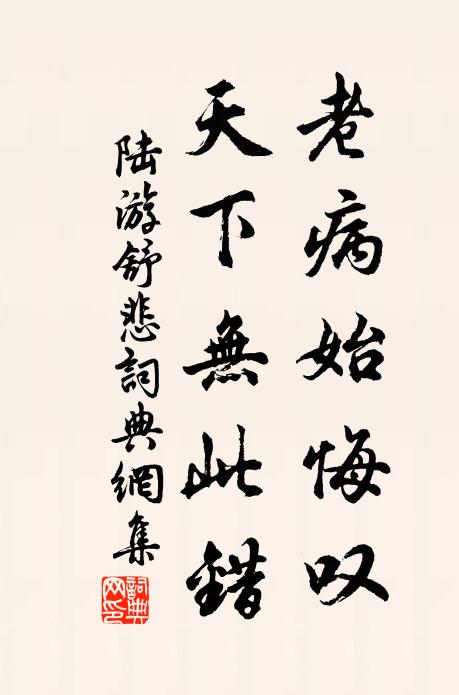 老病始悔叹
天下無此錯
陆游舒悲詞典網集
詞典網印